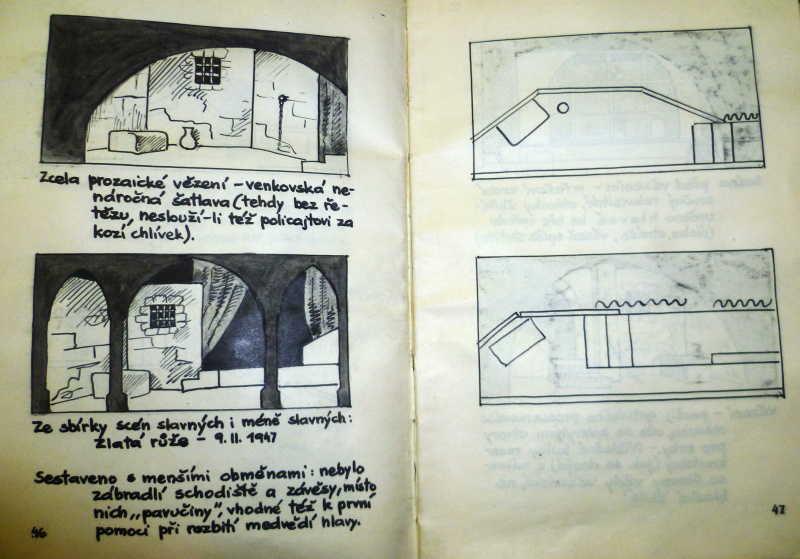 Zcela prozaické vězení – venkovská ne-
náročná šatlava (tehdy bez ře-
tězu, neslouží-li též policajtovi za
kozí chlívek).
Ze sbírky scén slavných i méně slavných:
Zlatá růže – 9.II. 1947
Sestaveno s menšími obměnami: nebylo
zábradlí schodiště a závěsy, místo
nich „pavučiny", vhodné též k první
pomoci při rozbití medvědí hlavy.
46
47